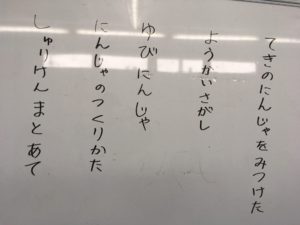 てきのにんじゃをみつけた
ようかいさがし
ゆびにんじゃ
にんじゃのつくりかた
しゅりけんまとあて